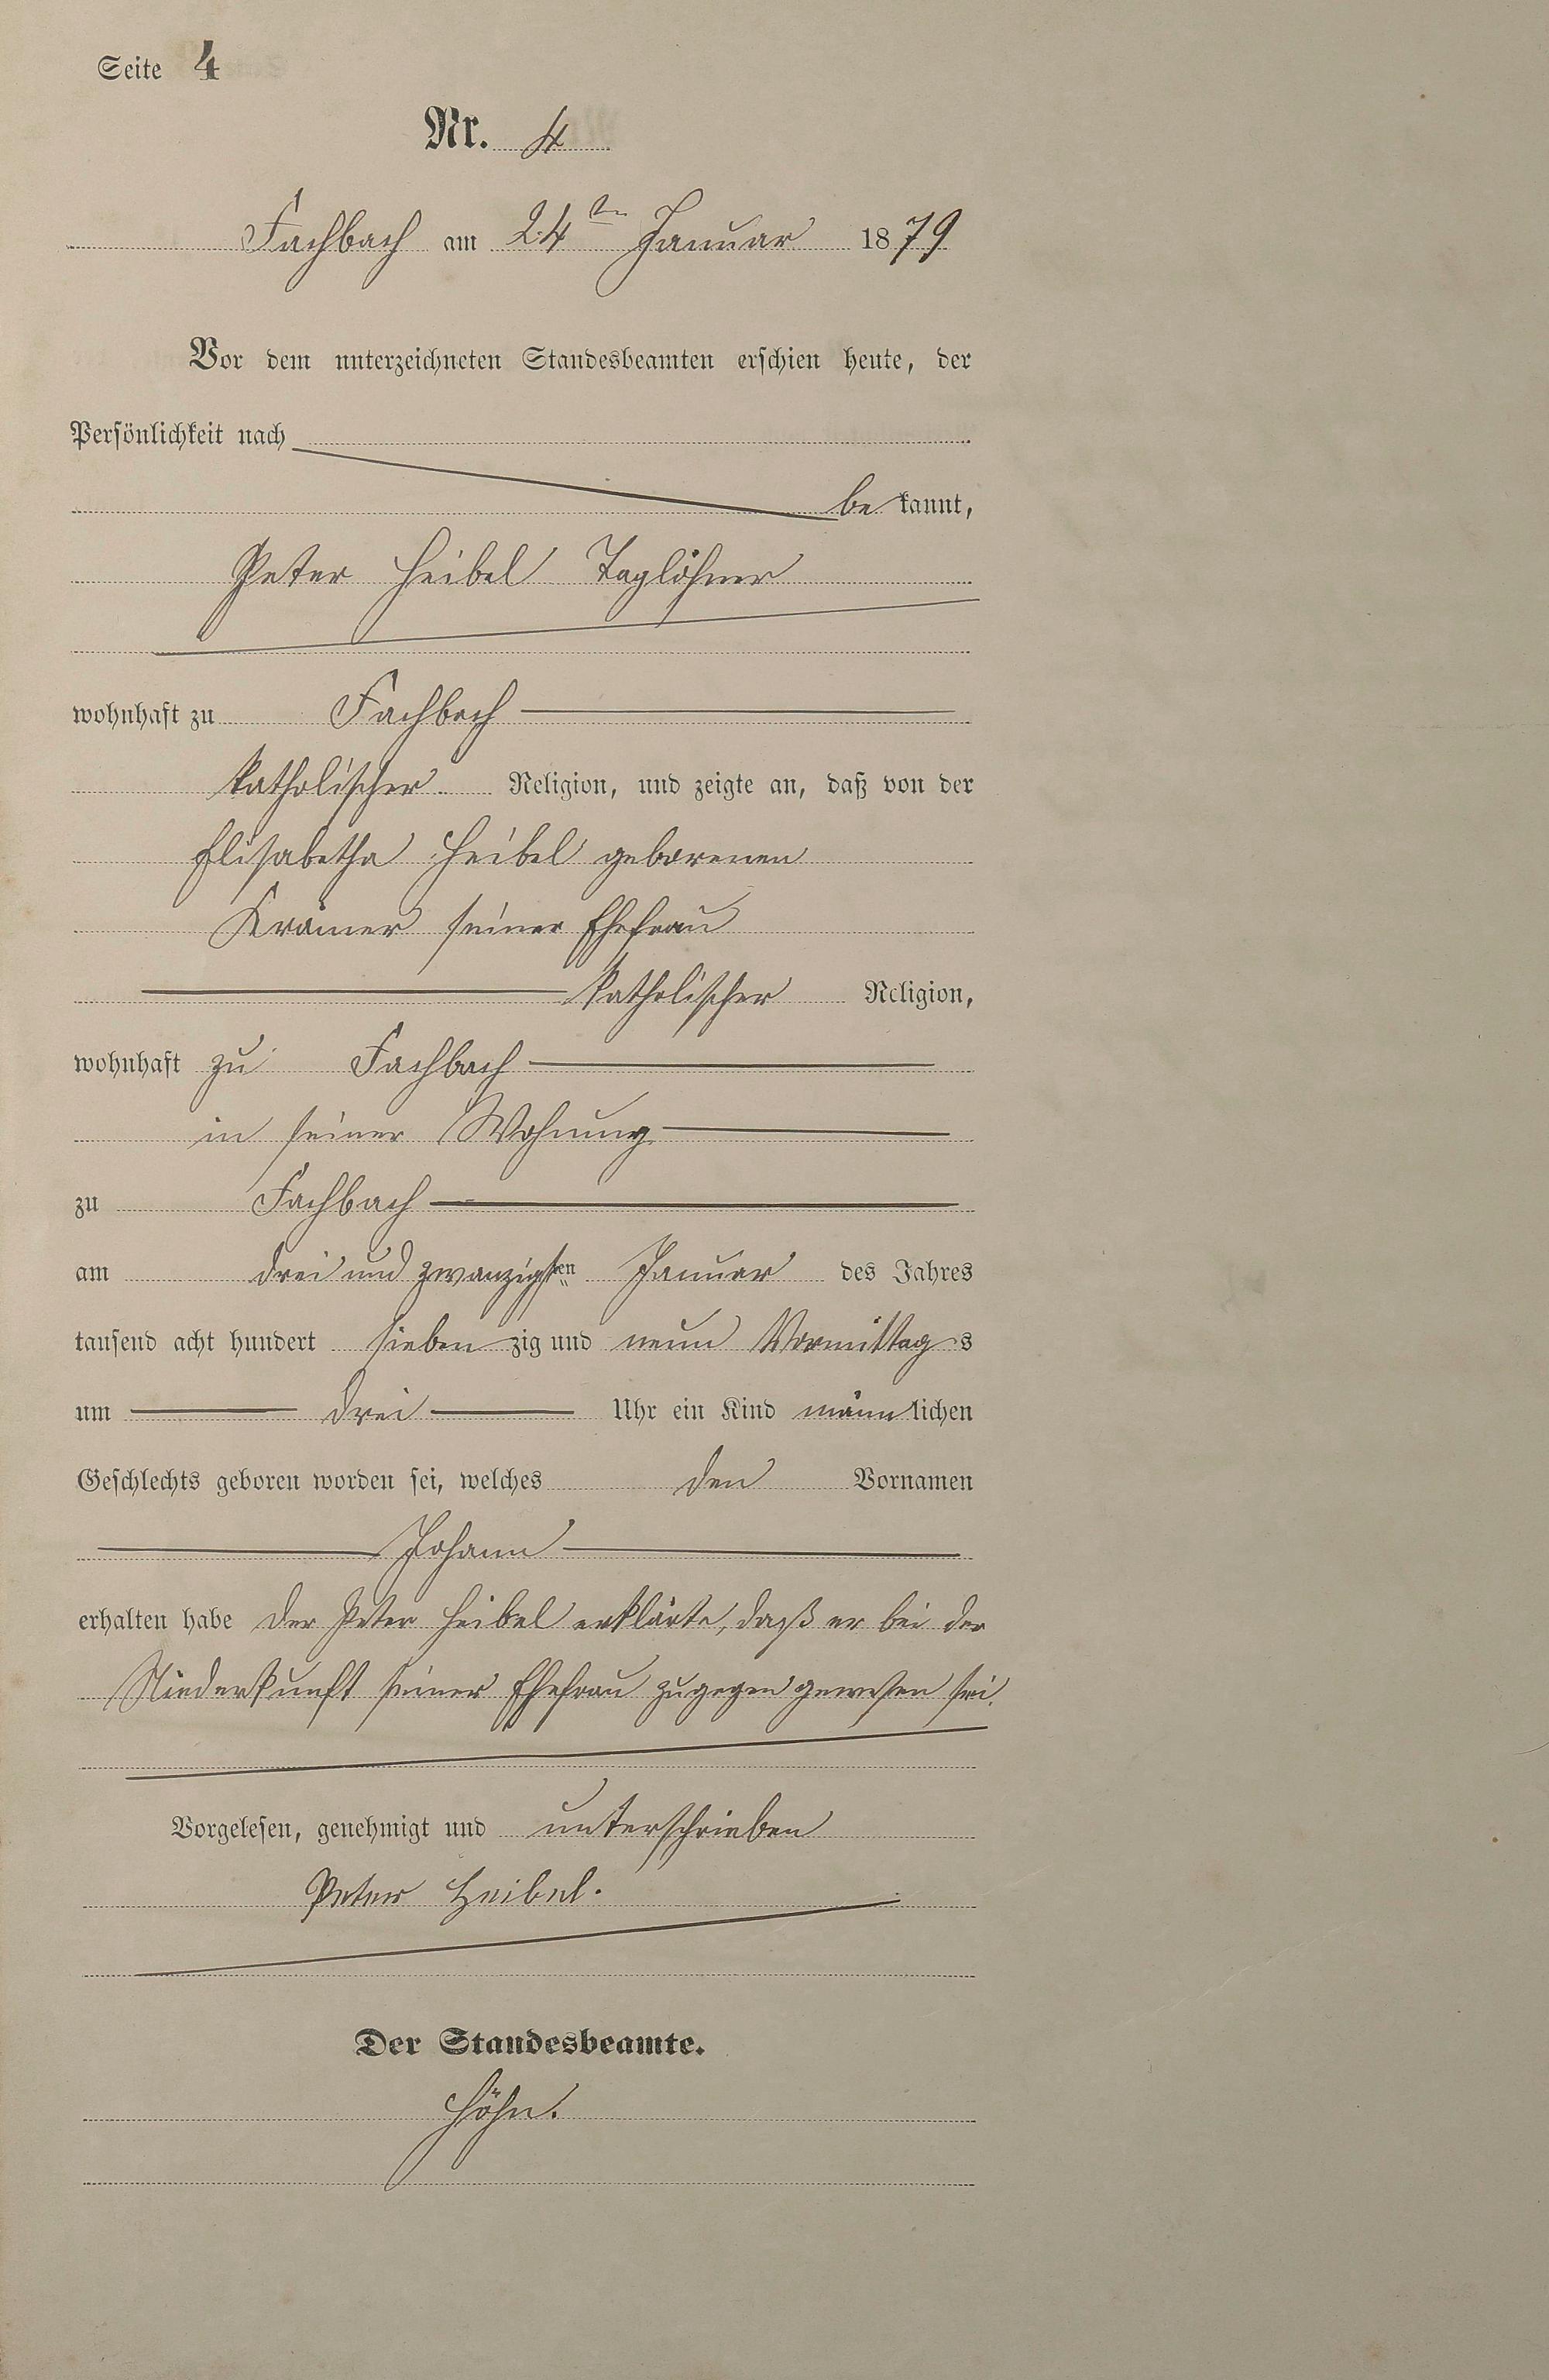 Seite 4
Nr. 4
Fachbach am 24ten Januar 1879
Vor dem unterzeichneten Standesbeamten erschien heute, der
Persönlichkeit nach
be kannt,
Peter Heibel Taglöhner
wohnhaft zu Fachbach
katholischer Religion, und zeigte an, daß von der
Elisabetha Heibel geborenen
Krämer seiner Ehefrau
katholischer Religion,
wohnhaft zu Fachbach
in seiner Wohnung
zu Fachbach
am drei und zwanzigsten Januar des Jahres
tausend acht hundert sieben zig und neun Vormittag s
um drei Uhr ein Kind männ lichen
Geschlechts geboren worden sei, welches den Vornamen
Johann
erhalten habe Der Peter Heibel erklärte, daß er bei der
Niederkunft seiner Ehefrau zugegen gewesen sei.
Vorgelesen, genehmigt und unterschrieben
Peter Heibel.
Der Standesbeamte.
Höhn.